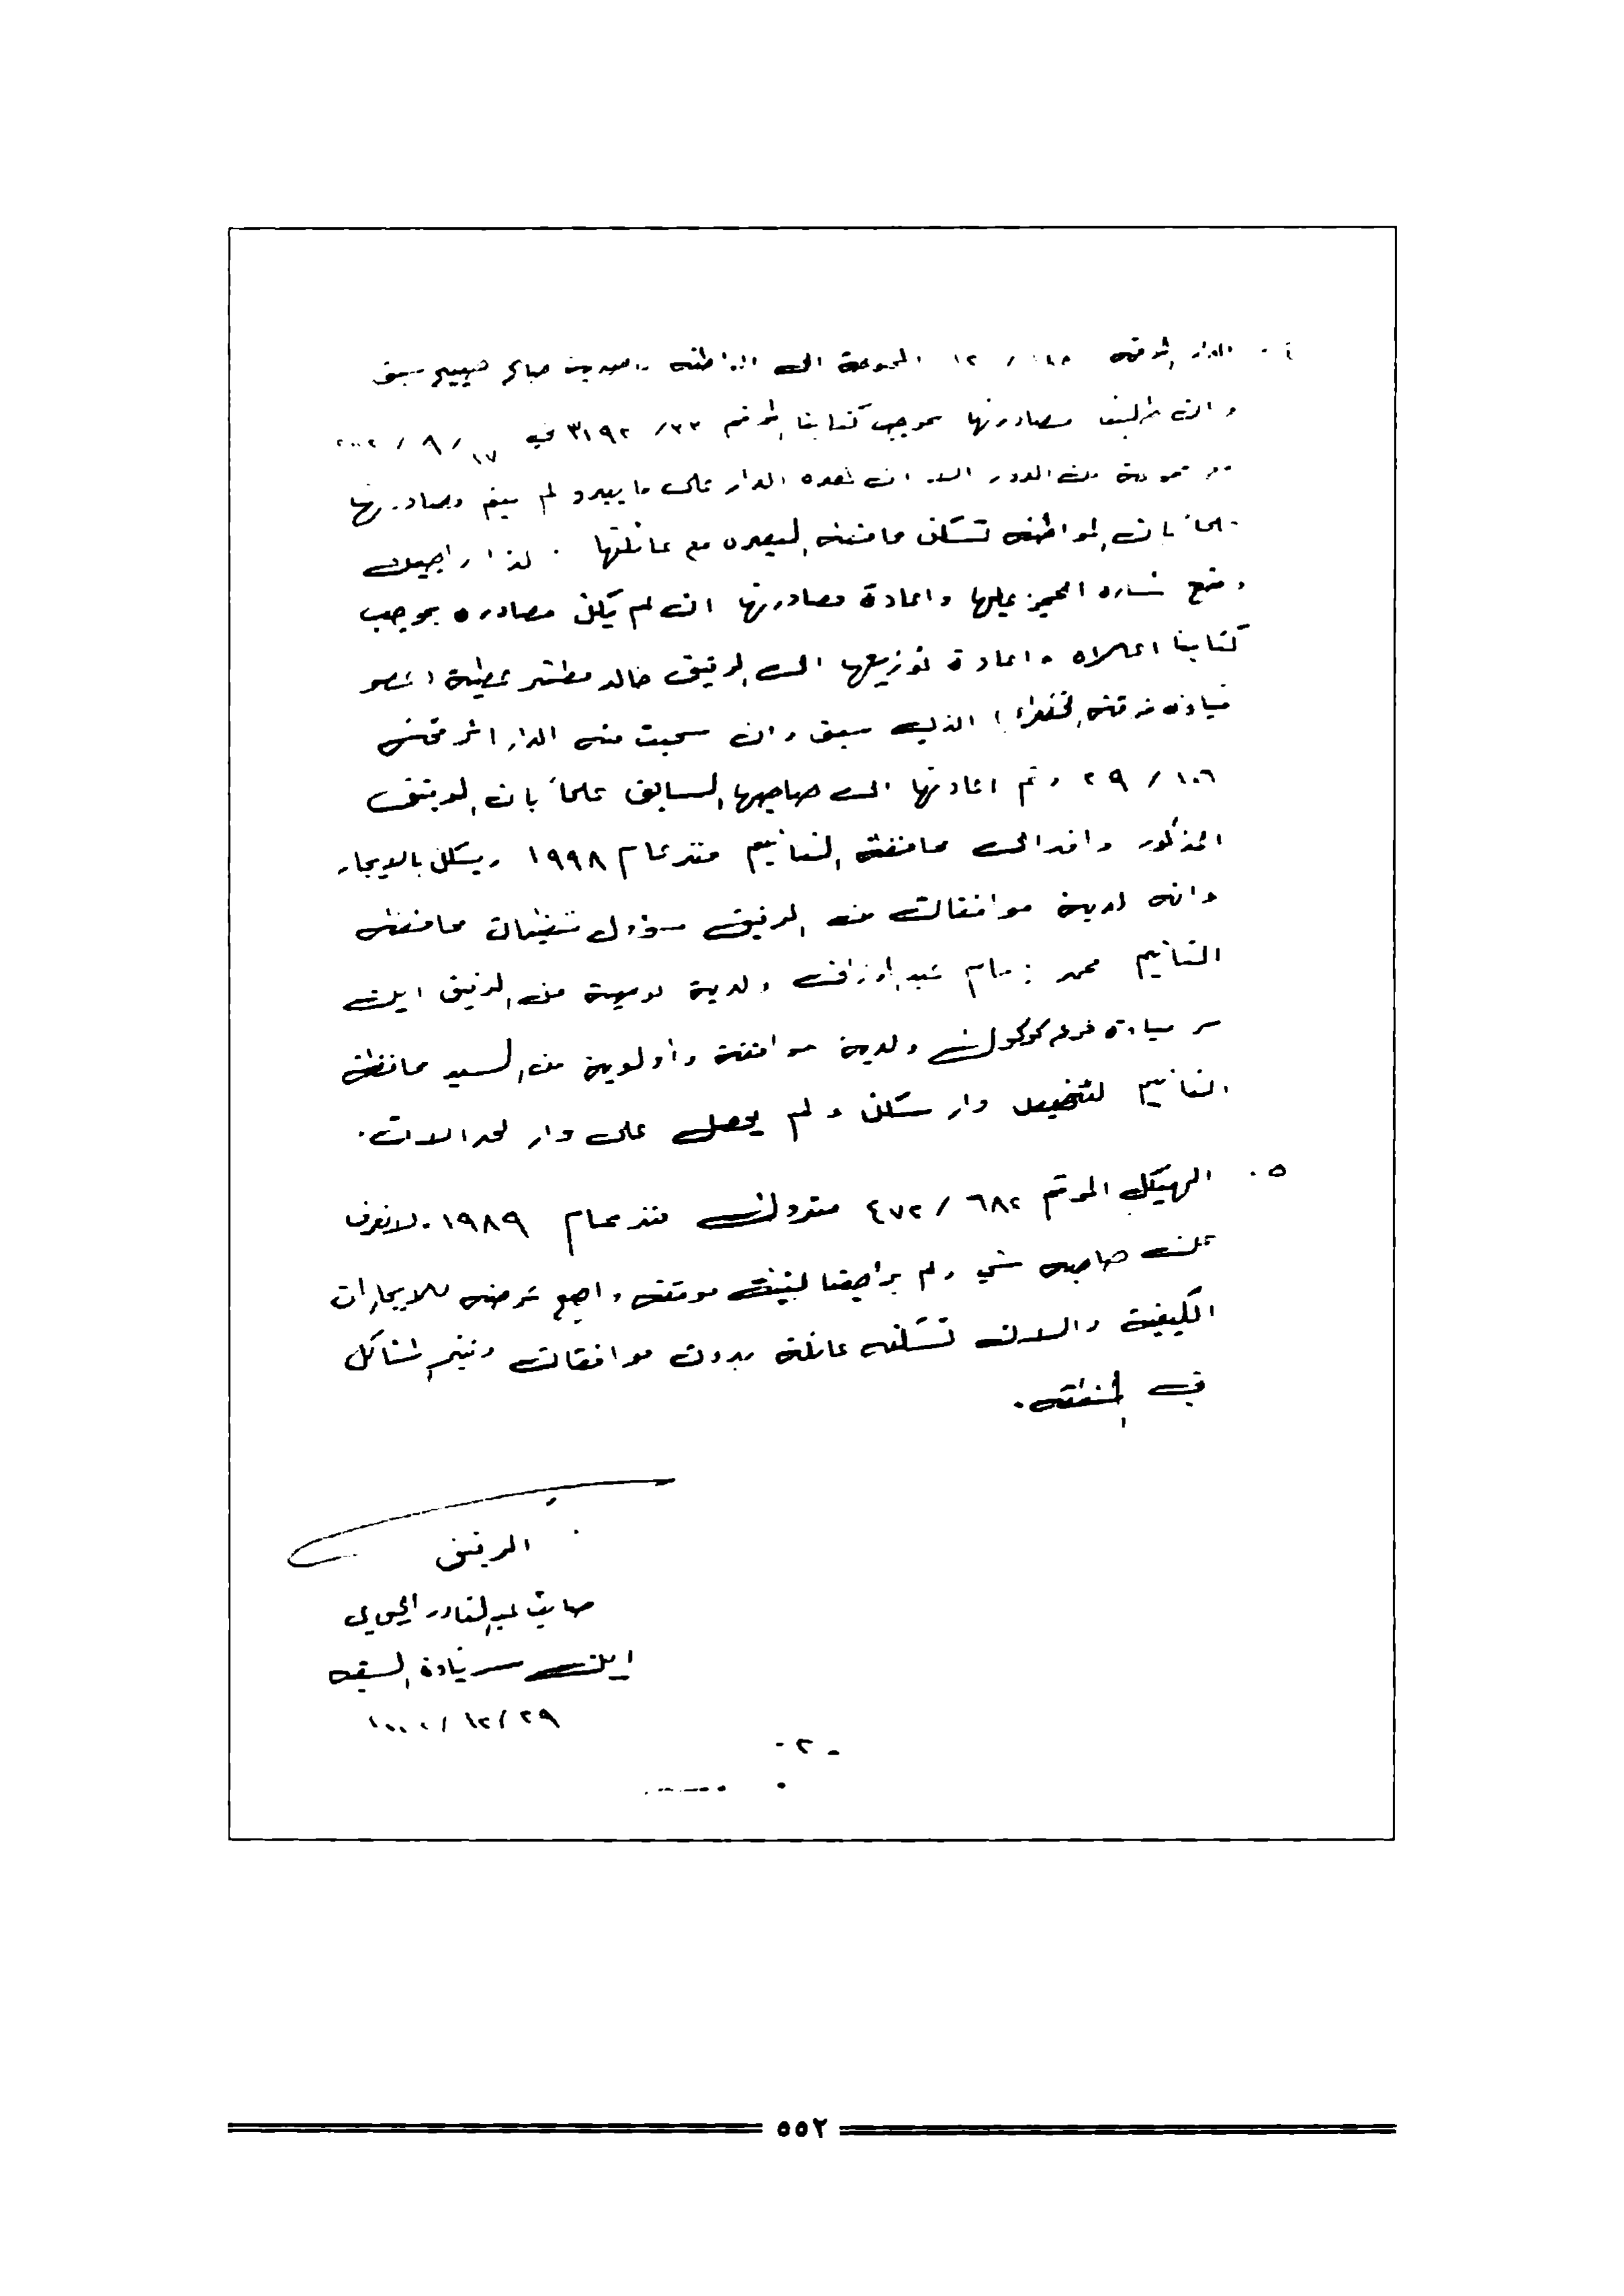 ٤. الدار المرقمة / ١٢ الممنوحة الى المواطنة صباح سبق
وان طلبنا مصادرتها بموجب كتابنا المرقم ٣١٩٢/٣٣ في ١٧/ ٩ / ٢٠٠٢
من الدور الا ان هذه الدار على ما يبدو لم يتم مصادرتها
علماً بان المواطنة تسكن محافظة البصرة مع عائلتها . لذا راجين
وضع شارة الحجز عليها واعادة مصادرتها ان لم يكن مصادره بموجب
كتابنا اعلاه واعادة توزيعها الى الرفيق خالد مطشر عطية ( عضو
قيادة فرقة ) الذي سبق وان سحبت منه الدار المرقمة
١٠٦ / ٢٩ وتم اعادتها الى صاحبها السابق علماً بان الرفيق
المذكور وافد الى محافظة التأميم منذ عام ١٩٩٨ ويسكن بالايجار
وانه لديه موافقات من الرفيق مسؤول تنظيمات محافظة
التأميم محمد زمام عبد الرزاق ولديه توصية من الرفيق امين
سر قيادة فرع كركوك ولديه موافقة وأولوية من السيد محافظ
التأميم لتخصيص دار سكن ولم يحصل على دار لحد الان .
٥. الهيكل المرقم ٦٨٢ / ٤٧٢ متروك منذ عام ١٩٨٩ . لانعرف
عن صاحبه شي ولم يراجعنا لتثبيت موقفه واصبح عرضه للايجارات
الكيفية والان تسكنه عائلة بدون موافقات وتثير المشاكل
في المنطقة .
الرفيق
عبد القادر
امين سر قيادة الشعبة
٢٩ / ١٢ / ٢٠٠٢
- ٢ -
٥٥٢